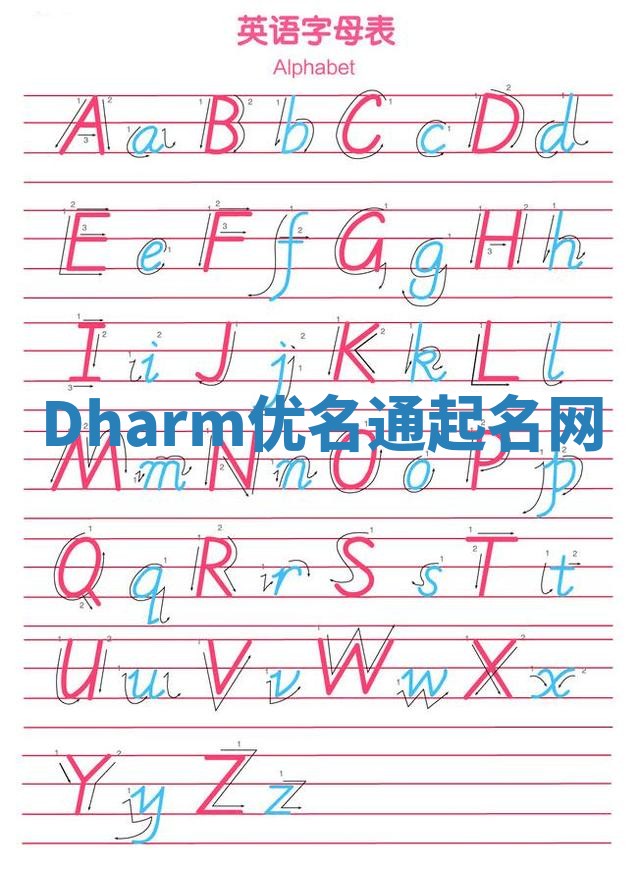 英语字母表
Alphabet
A a B b C c D d
E e F f G g H h
I i J j K k L l
Dharm优名通起名网
M m N n O o P p
Q q R r S s T t
U u V v W w X x
Y y Z z